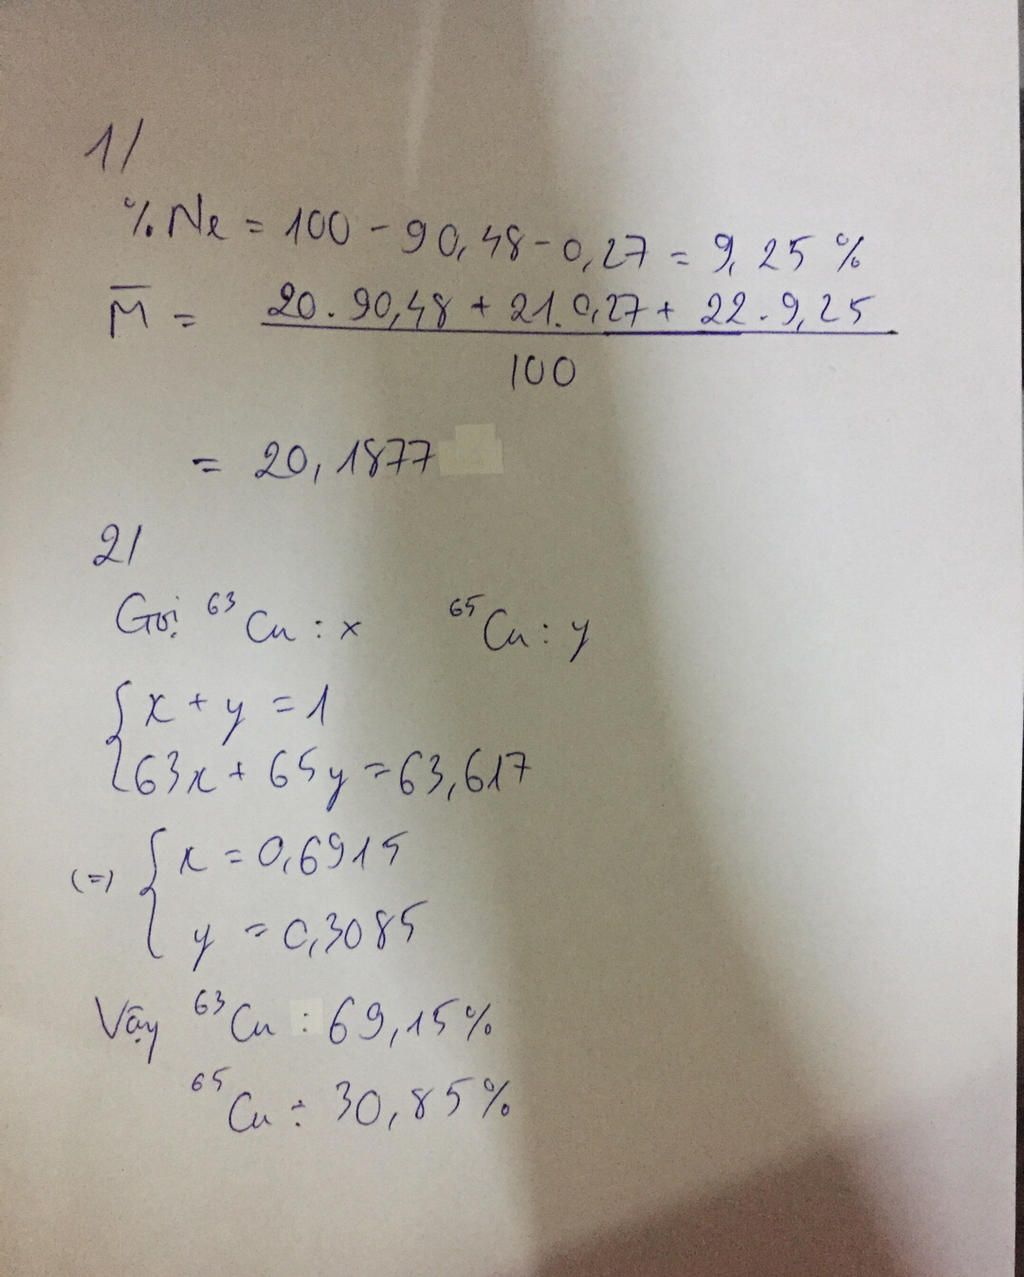 1/
% Ne = 100 - 90,48 - 0,27 = 9,25 %
M̅ = (20 . 90,48 + 21 . 0,27 + 22 . 9,25) / 100
= 20,1877
2/
Gọi ⁶³Cu : x ⁶⁵Cu : y
{ x + y = 1
{ 63x + 65y = 63,617
(=) { x = 0,6915
{ y = 0,3085
Vậy ⁶³Cu : 69,15%
⁶⁵Cu : 30,85%